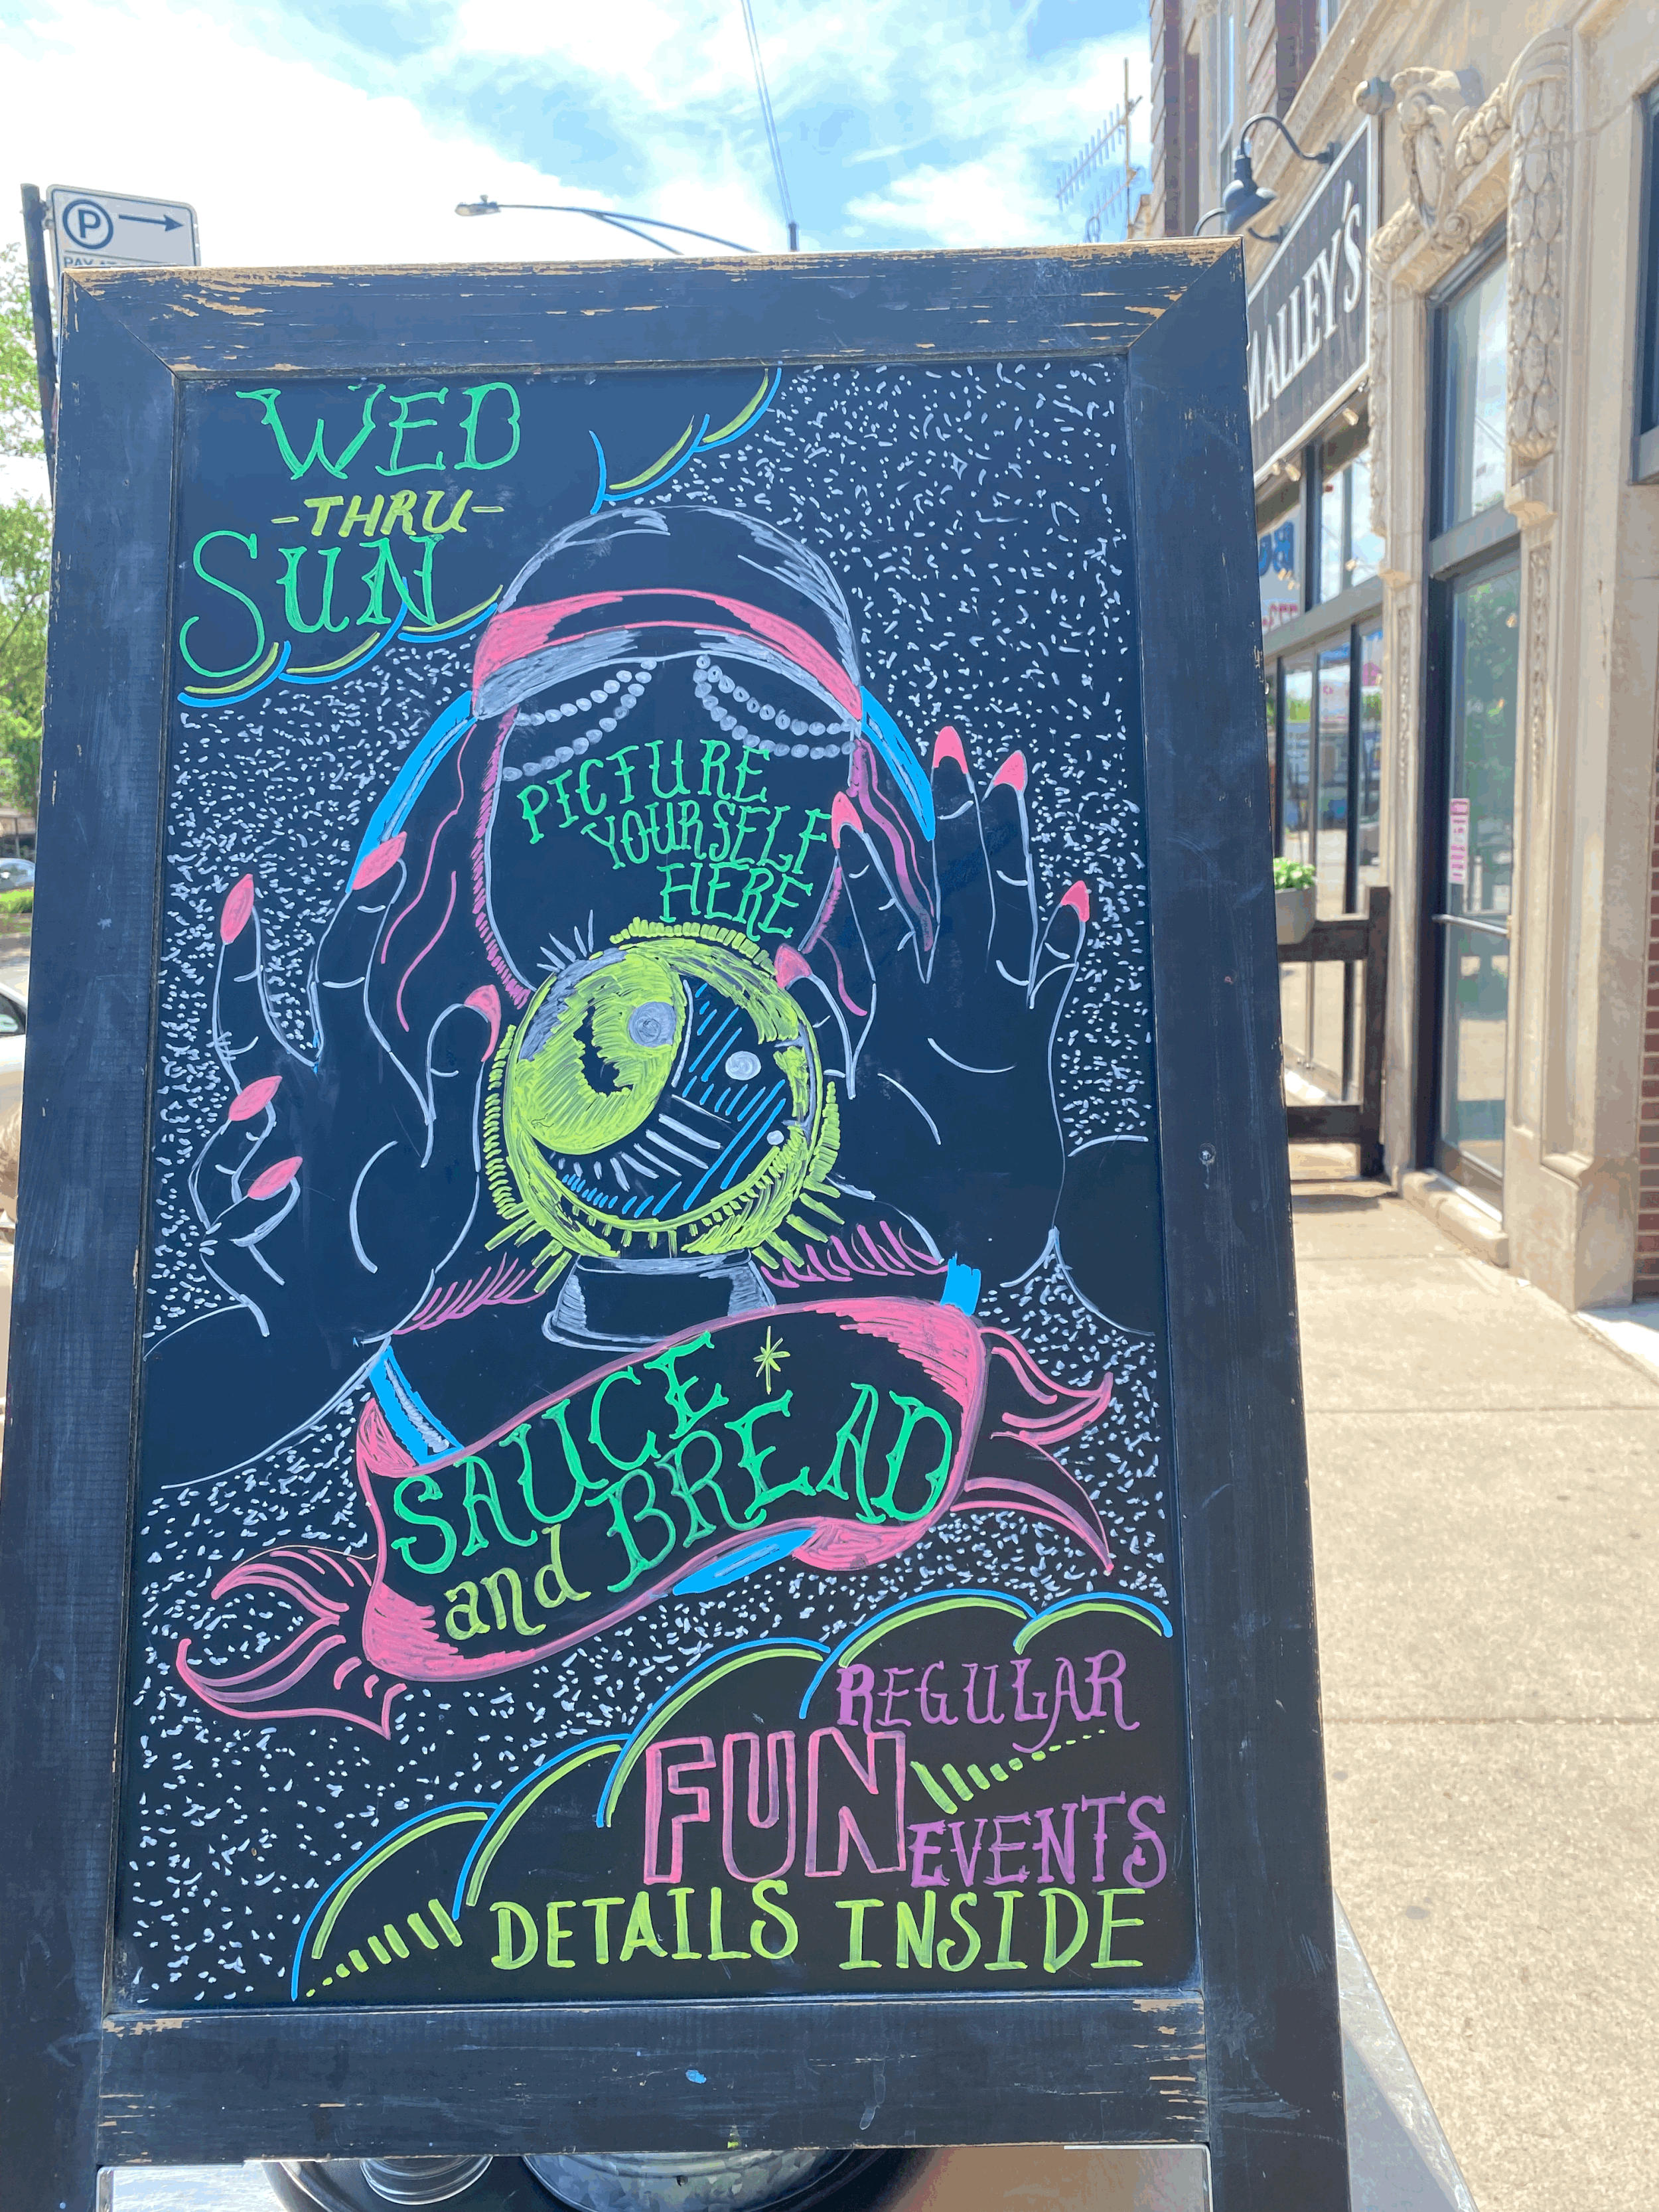 P
WED
-THRU-
SUN
PICTURE
YOURSELF
HERE
SAUCE
and BREAD
REGULAR
FUN
EVENTS
DETAILS INSIDE